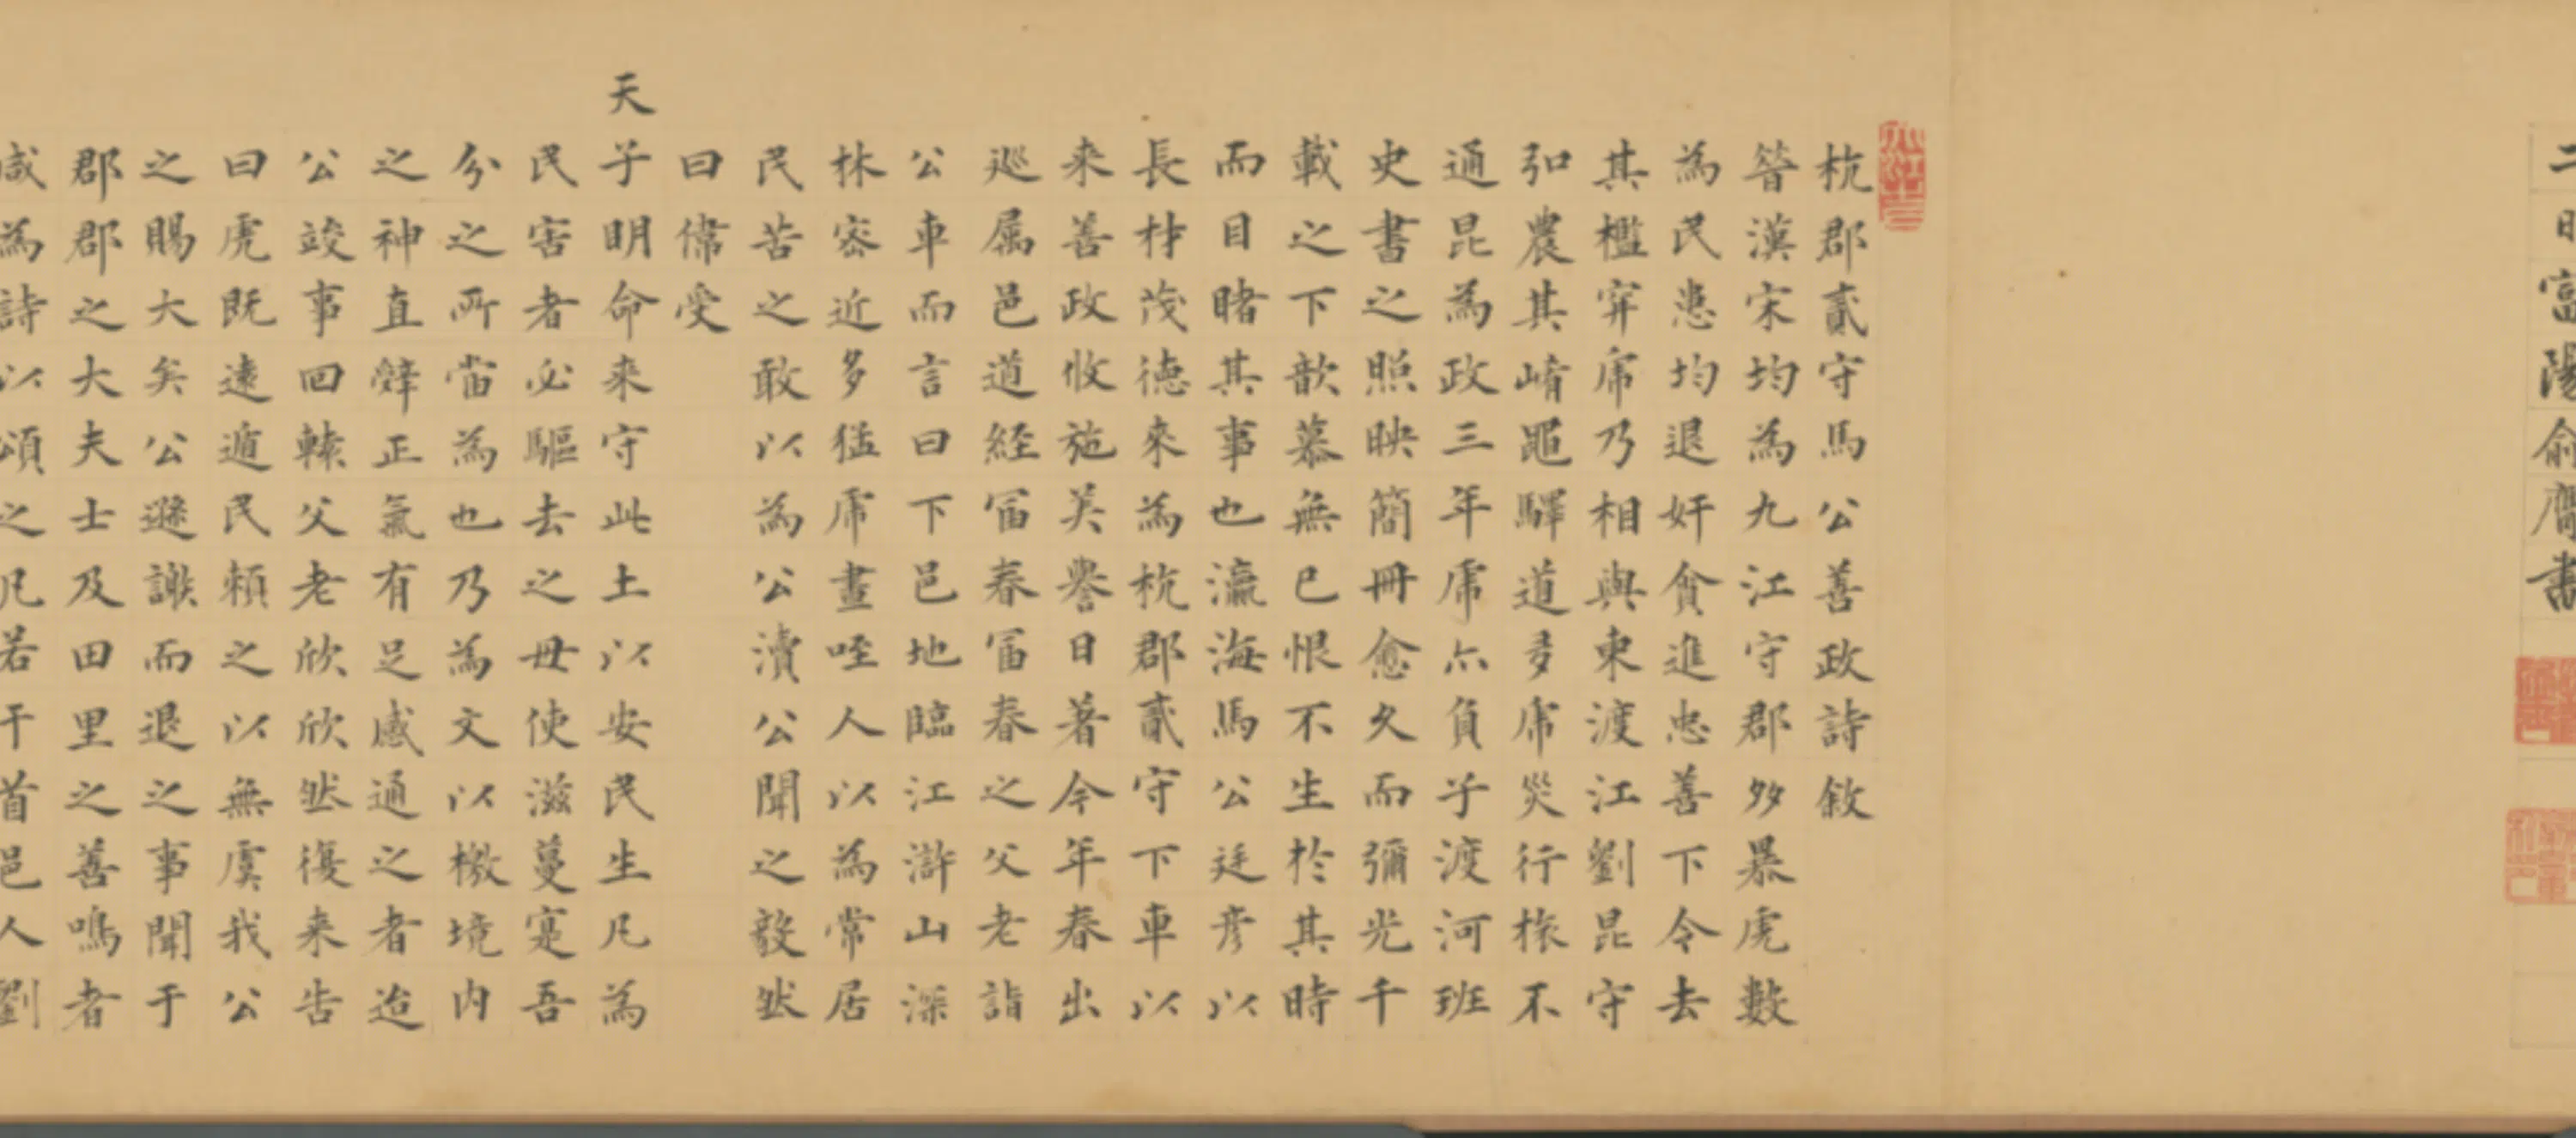 二日富陽俞膺書
杭郡貳守馬公善政詩敘
晉漢宋均為九江守郡多暴虎數
為民患均退奸貪進忠善下令去
其檻穽虎乃相與東渡江劉昆守
弘農其崤黽驛道多虎災行旅不
通昆為政三年虎亦負子渡河班
史書之照映簡冊愈久而彌光千
載之下歆慕無已恨不生於其時
而目睹其事也瀛海馬公廷彥以
長材茂德來為杭郡貳守下車以
来善政收施美譽日著今年春出
巡属邑道經富春富春之父老詣
公車而言曰下邑地臨江滸山深
林密近多猛虎晝咥人以為常居
民苦之敢以為公瀆公聞之毅然
曰儒受
天子明命来守此土以安民生凡為
民害者必驅去之毋使滋蔓寔吾
分之所當為也乃為文以檄境内
之神直辭正氣有足感通之者迨
公竣事回轅父老欣欣然復来告
曰虎既遠遁民頼之以無虞我公
之賜大矣公遜謝而退之事聞于
郡郡之大夫士及田里之善鳴者
咸為詩以頌之凡若干首邑人劉